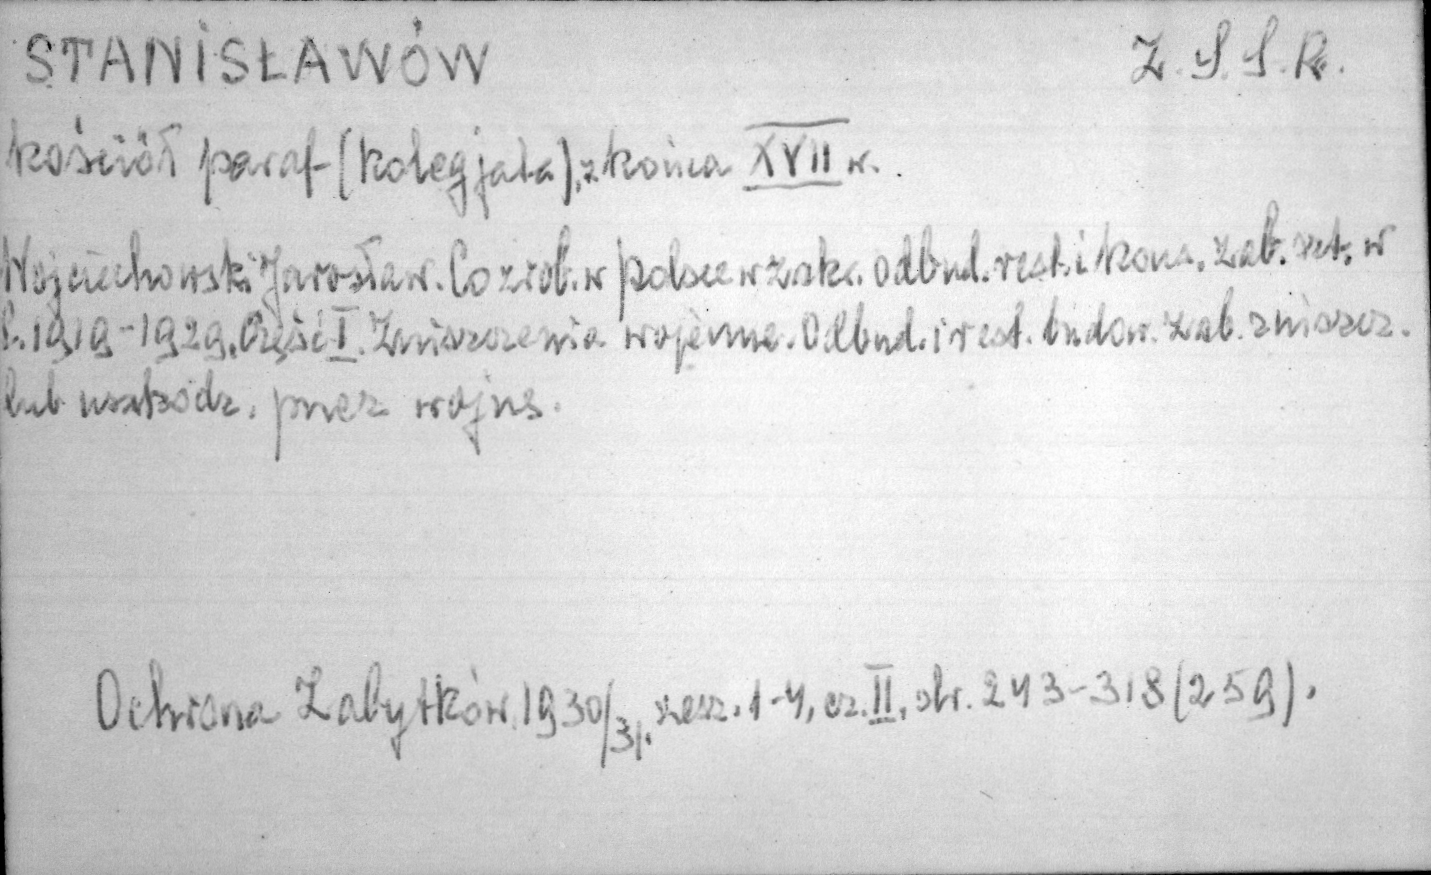 STANISŁAWÓW Z.S.S.R.
kościół paraf (kolegjata), z końca XVII w.
Wojciechowski Jarosław. Co zrob. w Polsce w zakr. odbud. rest. i kons. zab. szt. w
l. 1919-1929. Część I. Zniszczenia wojenne. Odbud. i rest. budow. zab. zniszcz.
lub uszkodz. przez wojnę.
Ochrona Zabytków, 1930/31. zesz. 1-4, cz. II, str. 243-318 (259).